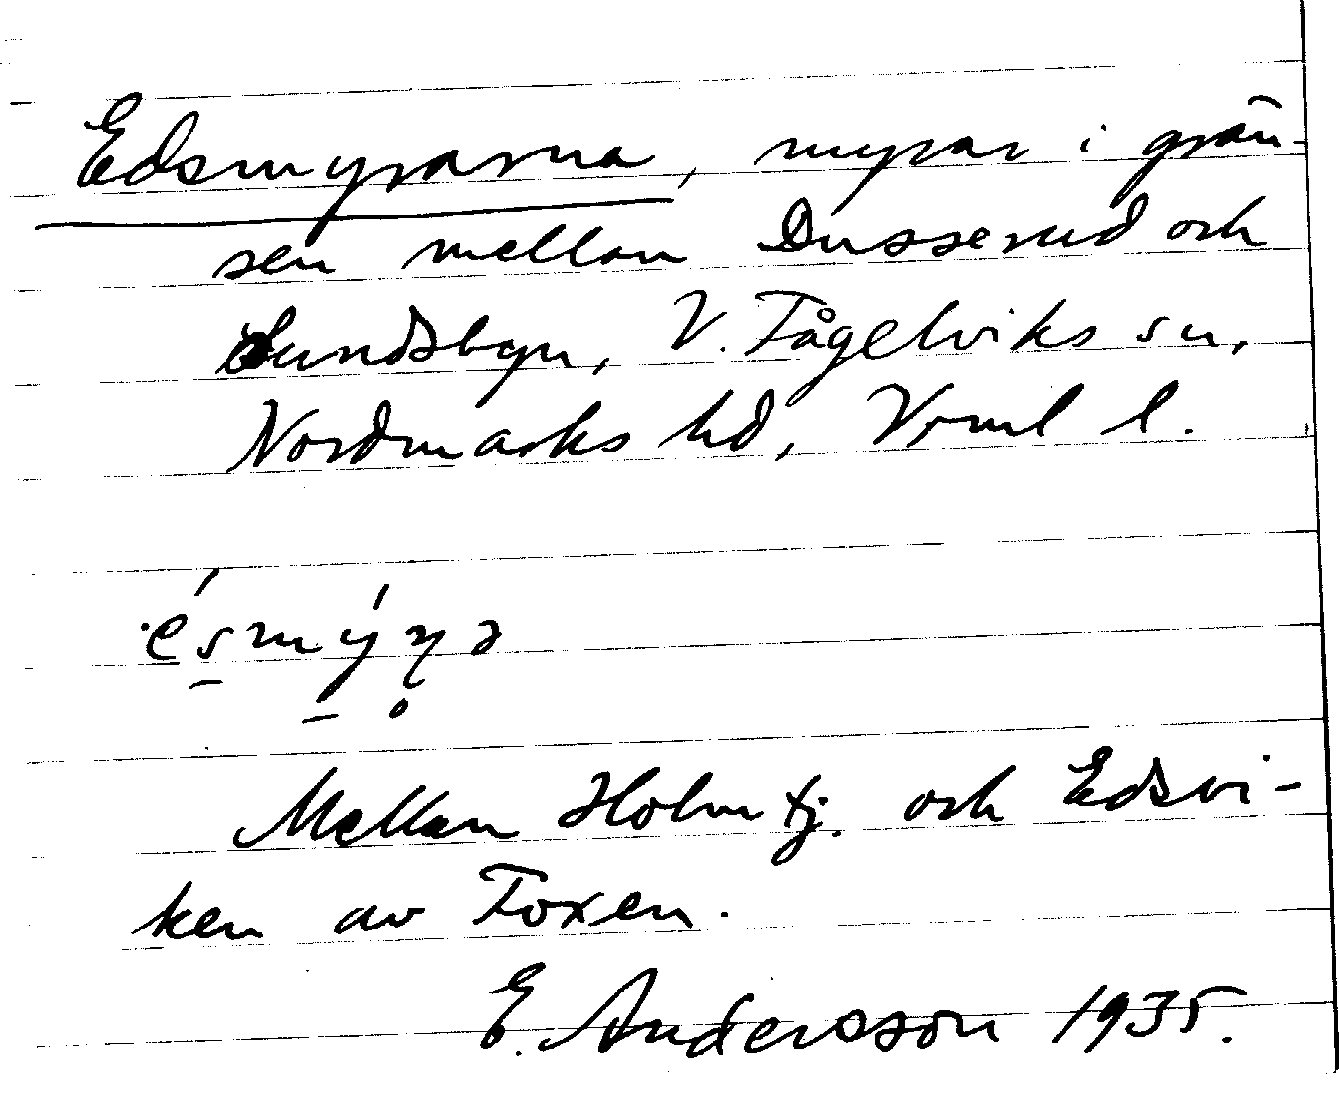 Edsmyrarna, myrar i grän-
sen mellan Dusserud och
Sundsbyn, V. Fågelviks sn,
Nordmarks hd, Vrml l.
Mellan Holmtj. och Edsvi-
ken av Foxen.
E. Andersson 1935.